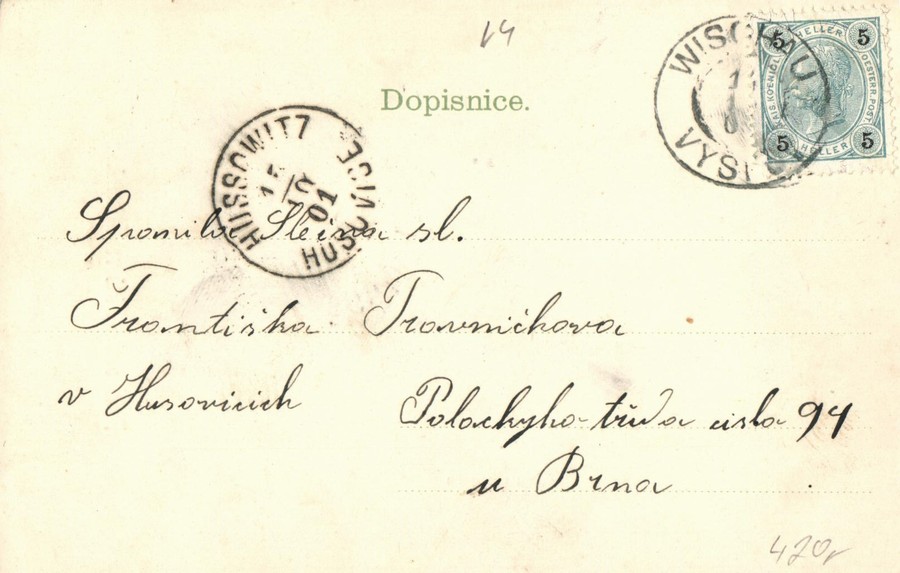 14
Dopisnice.
WISCHAU
VYŠKOV
5 HELLER 5
KAIS. KOENIGL. OESTERR. POST.
5 HELLER 5
HUSSOWITZ
HUSOVICE
15
10
01
Spanilá Slečna sl.
Františka Travničkova
v Husovicích Polackyho třída čislo 94
u Brna
420,-